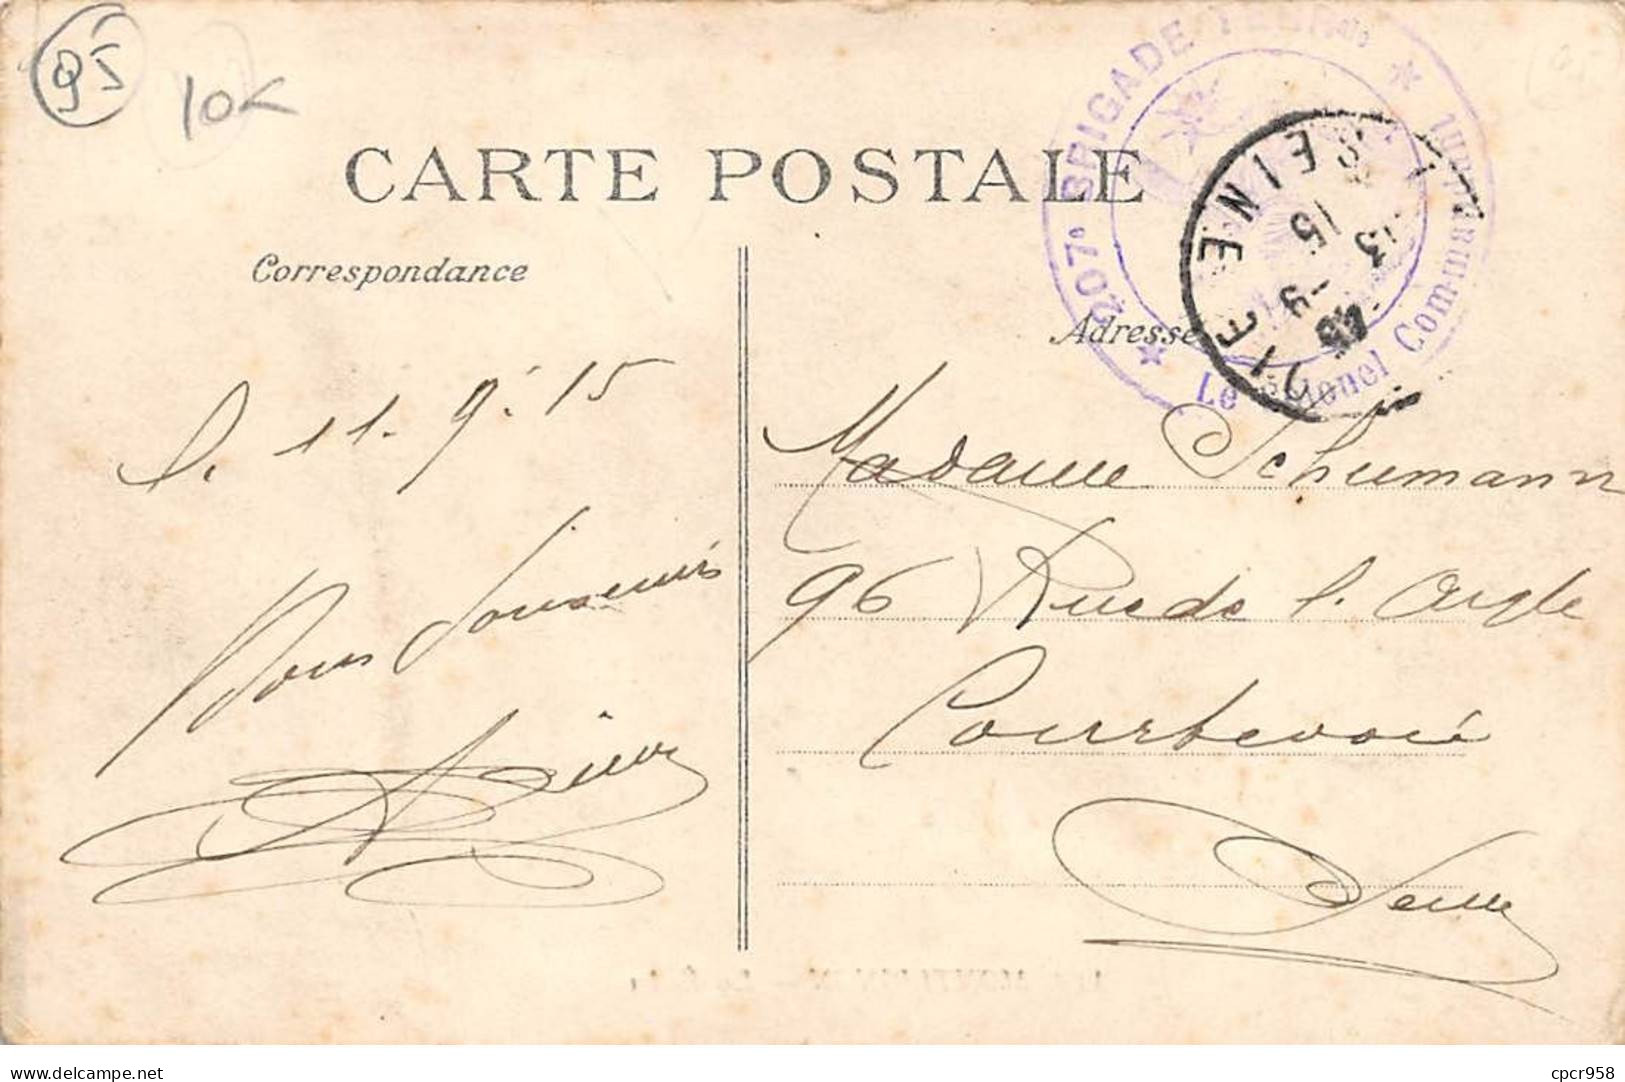 95
10€
CARTE POSTALE
Correspondance
Adresse
207e BRIGADE TERRle
Le Colonel Commandant
SEINE
15
9
13
L. 11. 9. 15
Bons Souvenirs
Madame Schumann
96 Rue de l. Aigle
Courbevoie
Seine
delcampe.net
cpcr958